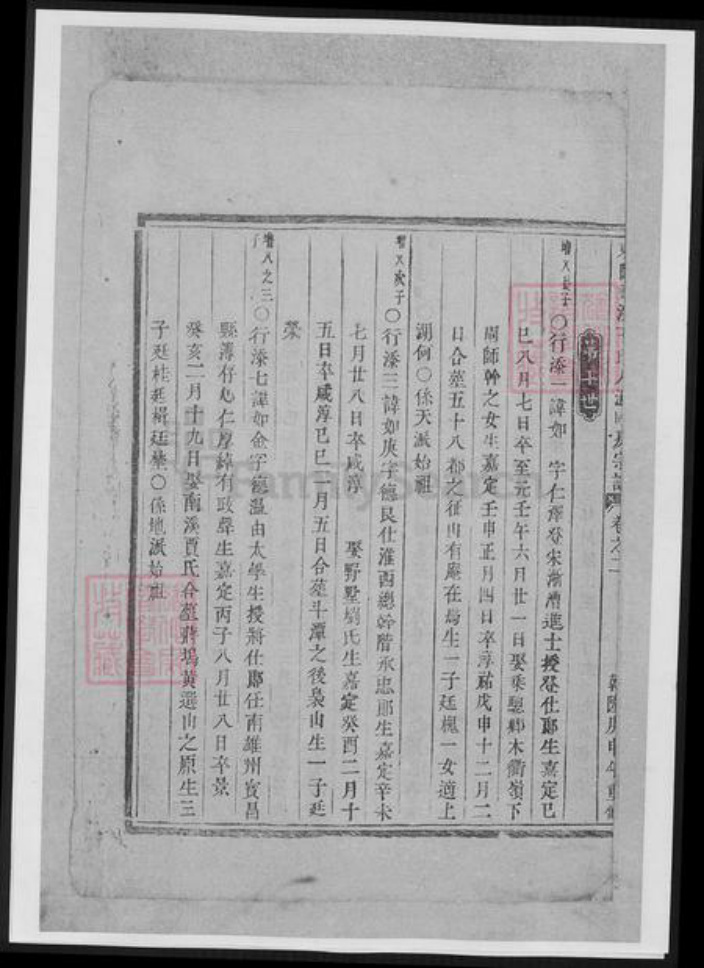 宗譜 卷之二 乾隆庚申年重修
第十世
增八長子〇行添一諱如 字仁澤登宋漸漕進士授登仕郎生嘉定己
巳八月七日卒至元壬午六月廿一日娶乘驄鄉木衢嶺下
周師幹之女生嘉定壬申正月四日卒淳祐戊申十二月二
日合葬五十八都之征山有庵在焉生一子廷槐一女適上
湖何〇係天派始祖
增八次子〇行添三諱如庚字德艮仕淮西總幹階承忠郎生嘉定辛未
七月廿八日卒咸淳 娶野墅劉氏生嘉定癸酉二月十
五日卒咸淳己巳一月五日合葬斗潭之後裊山生一子廷
榮
增八之三子〇行添七諱如金字德溫由太學生授將仕郎任南雄州寶昌
縣簿存心仁厚綽有政聲生嘉定丙子八月廿八日卒景
癸亥二月十九日娶南溪賈氏合葬蔣塢黃選山之原生三
子廷桂廷楫廷 〇係地派始祖